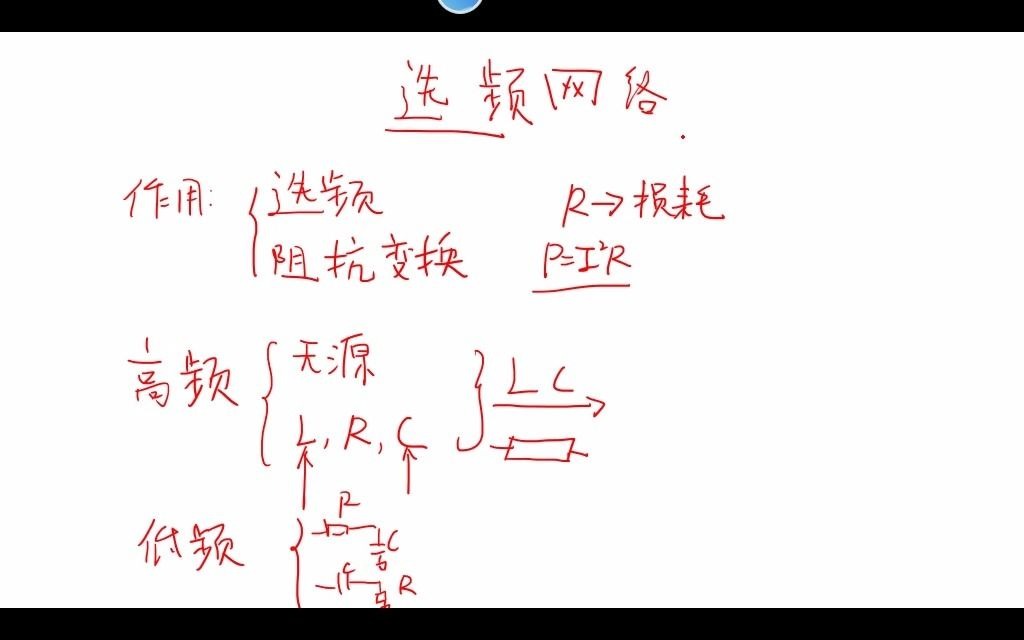 选频网络
作用: 选频
阻抗变换
R→损耗
P=I²R
高频 无源
L, R, C
L C
低频
R
C
C
R